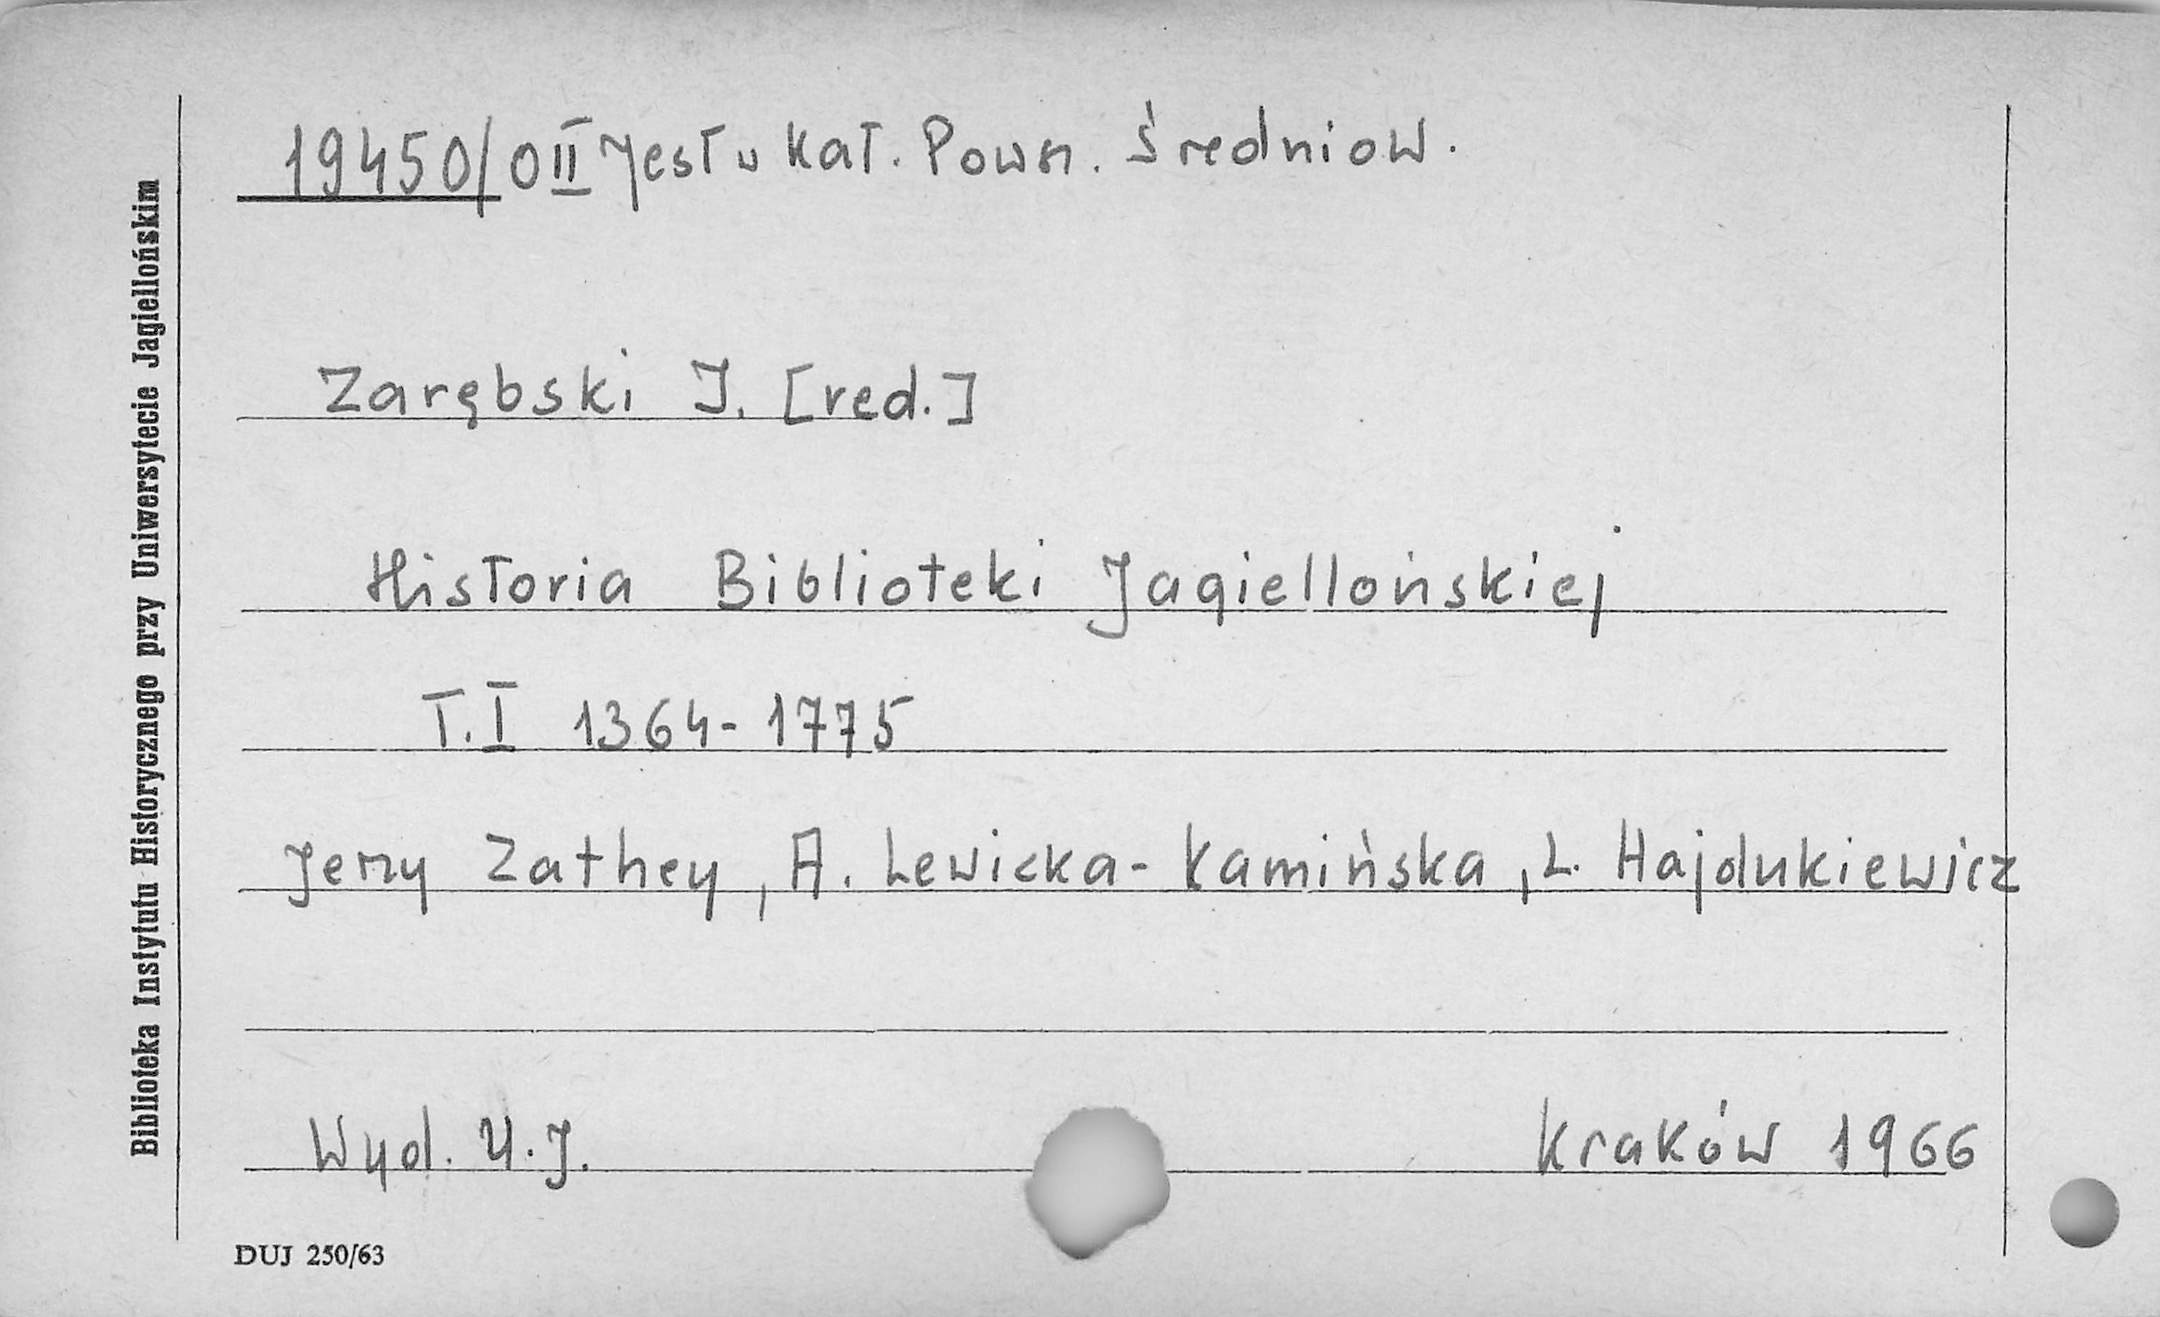 19450/0 II Jest w Kat. Powsz. Średniow.
Zarębski I. [red.]
Historia Biblioteki Jagiellońskiej
T.I 1364-1775
Jerzy Zathey, A. Lewicka-Kamińska, L. Hajdukiewicz
Wyd. U.J. Kraków 1966
DUJ 250/63
Biblioteka Instytutu Historycznego przy Uniwersytecie Jagiellońskim